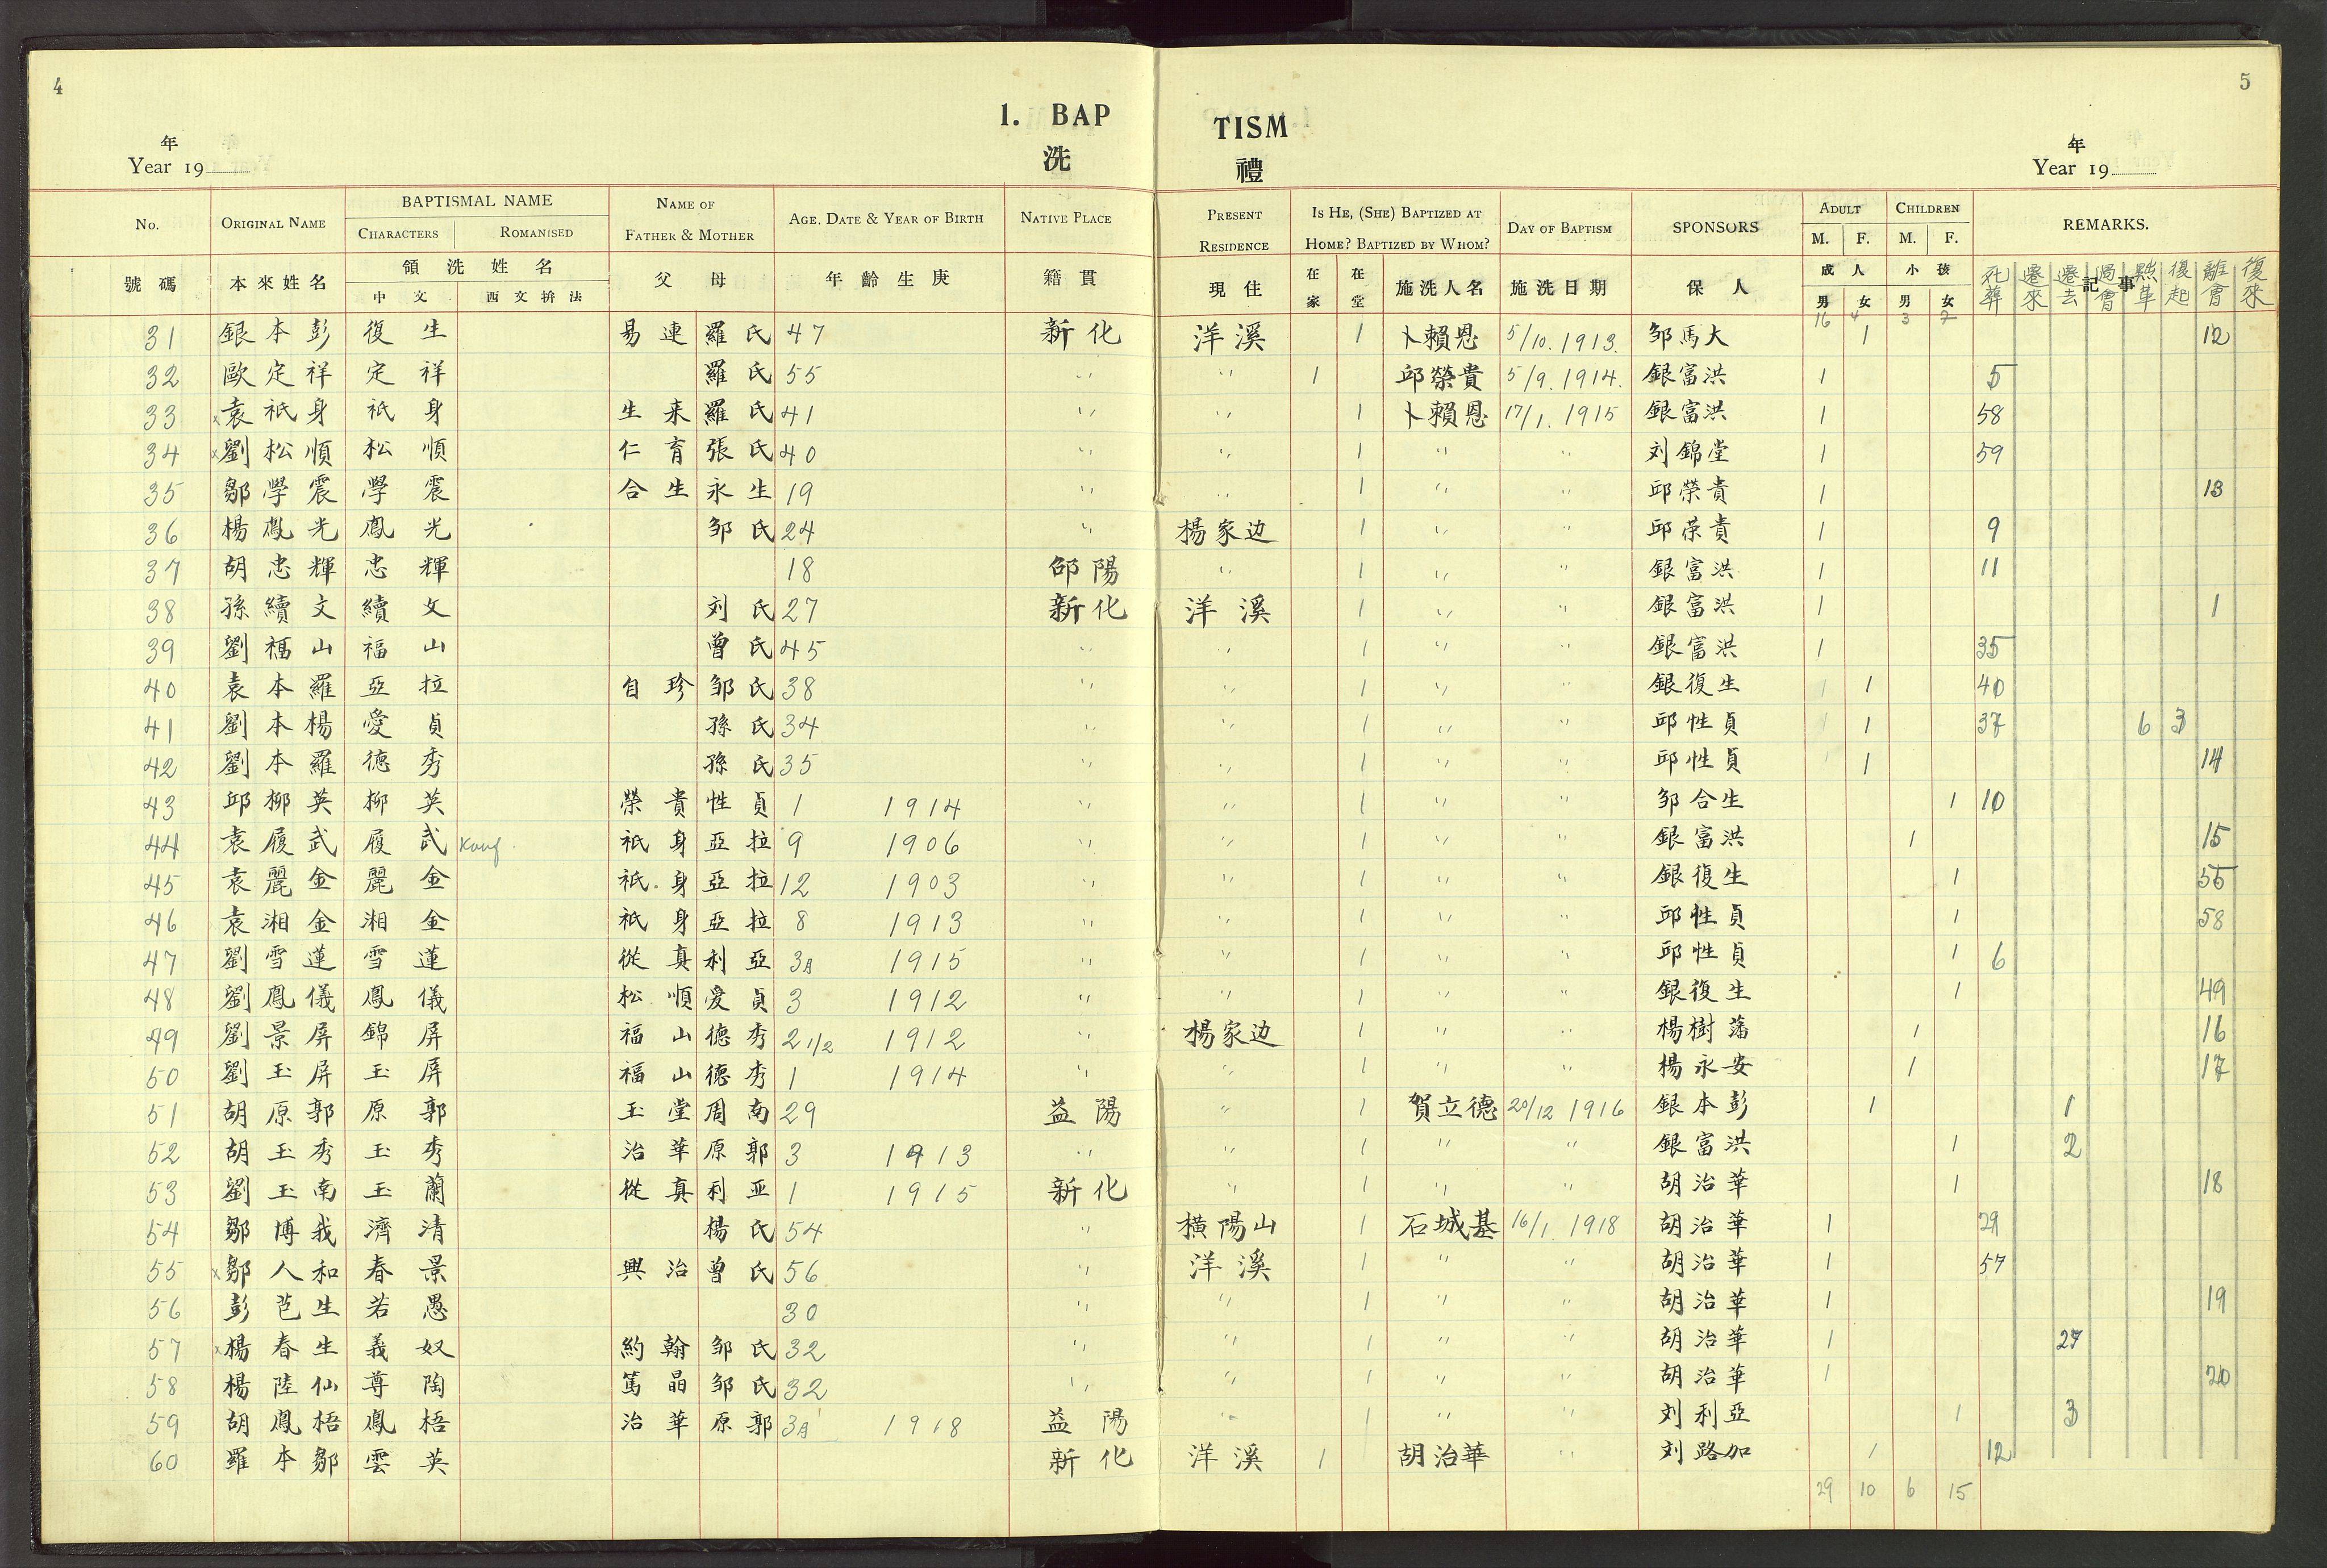 4
5
1. BAP TISM
洗 禮
年
Year 19
年
Year 19
No. ORIGINAL NAME BAPTISMAL NAME CHARACTERS ROMANISED NAME OF FATHER & MOTHER AGE. DATE & YEAR OF BIRTH NATIVE PLACE PRESENT RESIDENCE IS HE, (SHE) BAPTIZED AT HOME? BAPTIZED BY WHOM? DAY OF BAPTISM SPONSORS ADULT M. F. CHILDREN M. F. REMARKS.
號碼 本來姓名 領洗姓名 中文 西文拚法 父母 年齡生庚 籍貫 現住 在家 在堂 施洗人名 施洗日期 保人 成人 男 女 小孩 男 女 記事 死葬 遷來 遷去 過會 黜革 復起 離會 復來
16 4 3 7
31 銀本彭 復生 易連 羅氏 47 新化 洋溪 1 卜賴恩 5/10. 1913. 邹馬大 1 12
32 歐定祥 定祥 羅氏 55 〃 〃 1 邱榮貴 5/9. 1914. 銀富洪 1 5
33 x袁祇身 祇身 生来 羅氏 41 〃 〃 1 卜賴恩 17/1. 1915 銀富洪 1 58
34 x劉松順 松順 仁育 張氏 40 〃 〃 1 〃 〃 刘錦堂 1 59
35 鄒學震 學震 合生 永生 19 〃 〃 1 〃 〃 邱榮貴 1 13
36 楊鳳光 鳳光 邹氏 24 〃 楊家边 1 〃 〃 邱荣貴 1 9
37 胡忠輝 忠輝 18 邵陽 〃 1 〃 〃 銀富洪 1 11
38 孫續文 續文 刘氏 27 新化 洋溪 1 〃 〃 銀富洪 1 1
39 劉福山 福山 曾氏 45 〃 〃 1 〃 〃 銀富洪 1 35
40 袁本羅 亞拉 自珍 邹氏 38 〃 〃 1 〃 〃 銀復生 1 40
41 劉本楊 愛貞 孫氏 34 〃 〃 1 〃 〃 邱性貞 1 37 6 3
42 劉本羅 德秀 孫氏 35 〃 〃 1 〃 〃 邱性貞 1 14
43 邱柳英 柳英 榮貴 性貞 1 1914 〃 〃 1 〃 〃 邹合生 1 10
44 袁履武 履武 祇身 亞拉 9 1906 〃 〃 1 〃 〃 銀富洪 1 15
45 袁麗金 麗金 祇身 亞拉 12 1903 〃 〃 1 〃 〃 銀復生 1 56
46 袁湘金 湘金 祇身 亞拉 8 1913 〃 〃 1 〃 〃 邱性貞 1 58
47 劉雪蓮 雪蓮 從真 利亞 3月 1915 〃 〃 1 〃 〃 邱性貞 1 6
48 劉鳳儀 鳳儀 松順 愛貞 3 1912 〃 〃 1 〃 〃 銀復生 1 49
49 劉景屏 錦屏 福山 德秀 2 1/2 1912 〃 楊家边 1 〃 〃 楊樹藩 1 16
50 劉玉屏 玉屏 福山 德秀 1 1914 〃 〃 1 〃 〃 楊永安 1 17
51 胡原郭 原郭 玉堂 周南 29 益陽 〃 1 賀立德 20/12 1916 銀本彭 1 1
52 胡玉秀 玉秀 治華 原郭 3 1913 〃 〃 1 〃 〃 銀富洪 1 2
53 劉玉南 玉蘭 從真 利亚 1 1915 新化 〃 1 〃 〃 胡治華 1 18
54 鄒博我 濟清 楊氏 54 〃 横陽山 1 石城基 16/1. 1918 胡治華 1 29
55 x鄒人和 春景 興治 曾氏 56 〃 洋溪 1 〃 〃 胡治華 1 57
56 彭芭生 若愚 30 〃 〃 1 〃 〃 胡治華 1 19
57 x楊春生 義奴 約翰 邹氏 32 〃 〃 1 〃 〃 胡治華 1 27
58 楊陸仙 尊陶 篤晶 邹氏 32 〃 〃 1 〃 〃 胡治華 1 20
59 胡鳳梧 鳳梧 治華 原郭 3月 1918 益陽 〃 1 〃 〃 刘利亞 1 3
60 羅本鄒 雲英 新化 洋溪 1 胡治華 〃 刘路加 1 12
29 10 6 15